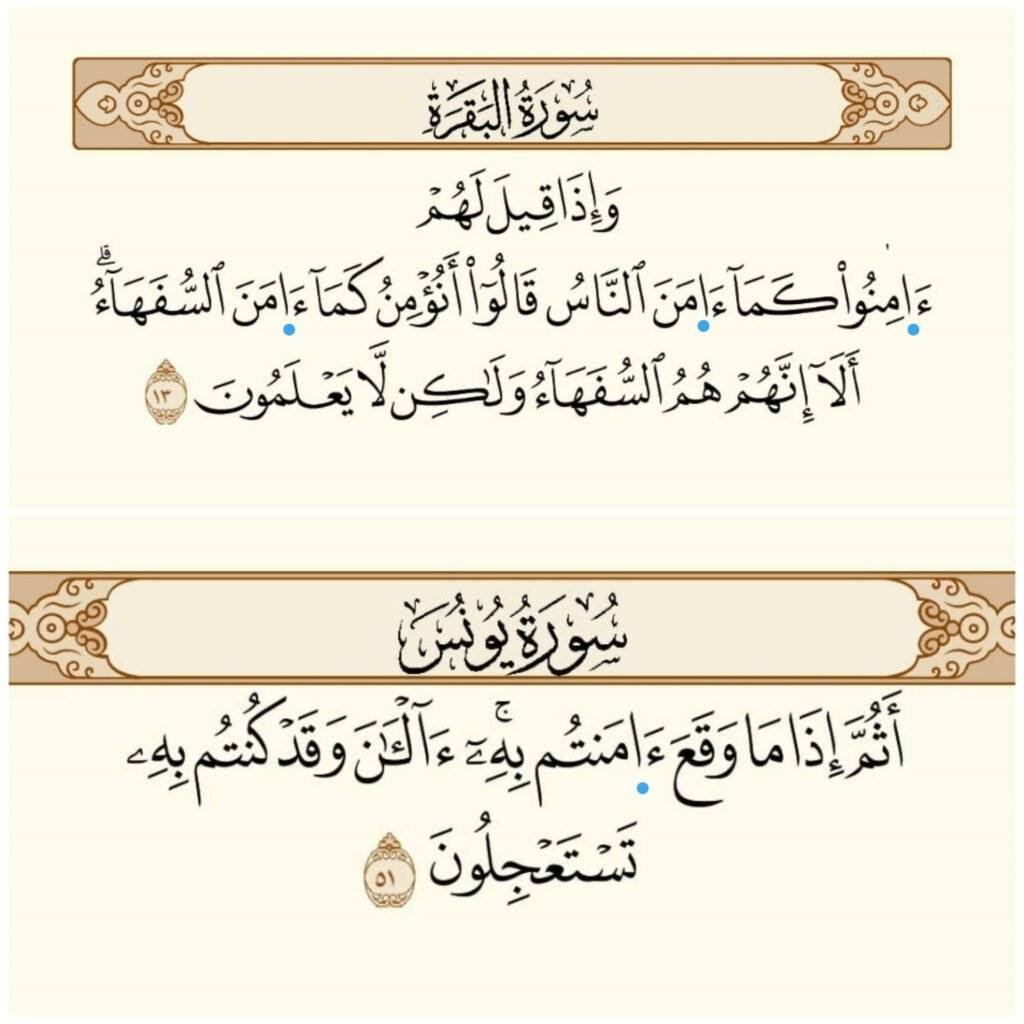 سُورَةُ البَقَرَةِ
وَإِذَا قِيلَ لَهُمۡ
ءَامِنُواْ كَمَآ ءَامَنَ ٱلنَّاسُ قَالُوٓاْ أَنُؤۡمِنُ كَمَآ ءَامَنَ ٱلسُّفَهَآءُۗ
أَلَآ إِنَّهُمۡ هُمُ ٱلسُّفَهَآءُ وَلَٰكِن لَّا يَعۡلَمُونَ ١٣
سُورَةُ يُونُسَ
أَثُمَّ إِذَا مَا وَقَعَ ءَامَنتُم بِهِۦٓۚ ءَآلۡـَٰٔنَ وَقَدۡ كُنتُم بِهِۦ
تَسۡتَعۡجِلُونَ ٥١